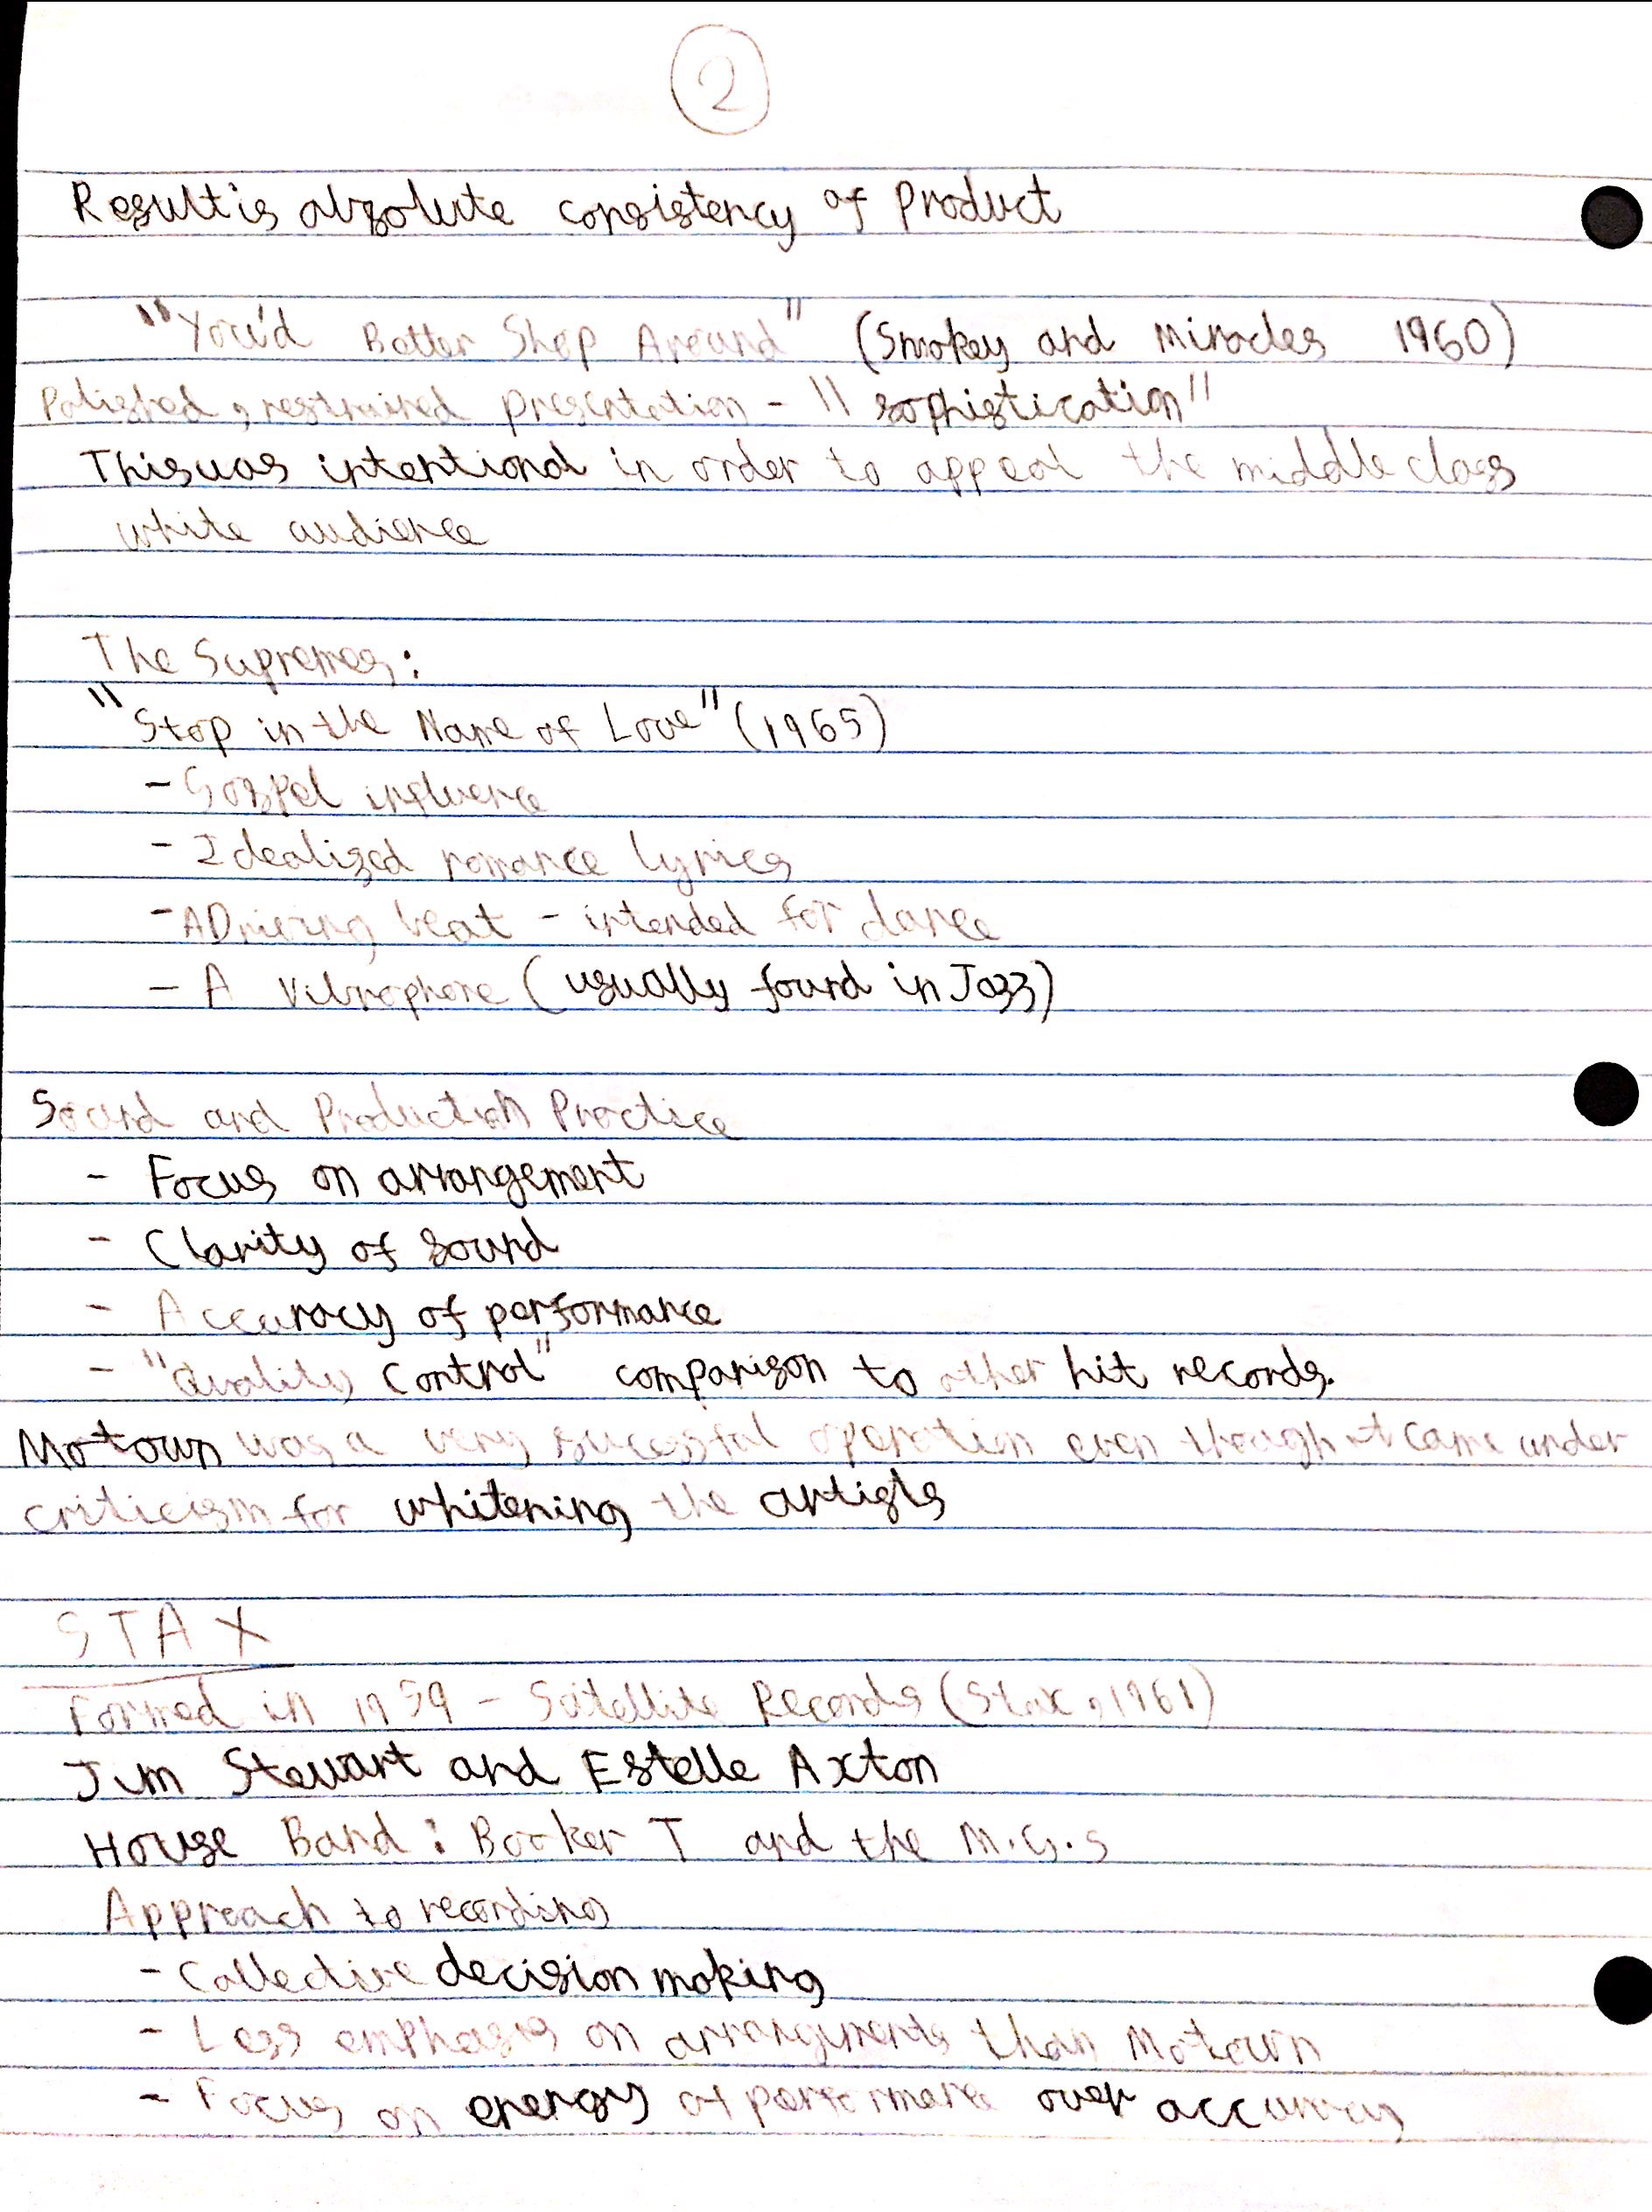 2
Result is absolute consistency of Product
"You'd Better Shop Around" (Smokey and Miracles 1960)
Polished, restrained presentation - "sophistication"
This was intentional in order to appeal the middle class
white audience
The Supremes:
"Stop in the Name of Love" (1965)
- Gospel influence
- Idealized romance lyrics
- A Driving beat - intended for dance
- A Vibraphone (usually found in Jazz)
Sound and Production Practice
- Focus on arrangement
- Clarity of sound
- Accuracy of performance
- "Quality Control" comparison to other hit records.
Motown was a very sucessful operation even though it came under
criticism for whitening the artists
STAX
Formed in 1959 - Satellite Records (Stax, 1961)
Jim Stewart and Estelle Axton
House Band: Booker T and the M.G.s
Approach to recording
- Collective decision making
- Less emphasis on arrangements than Motown
- Focus on energy of performance over accuracy